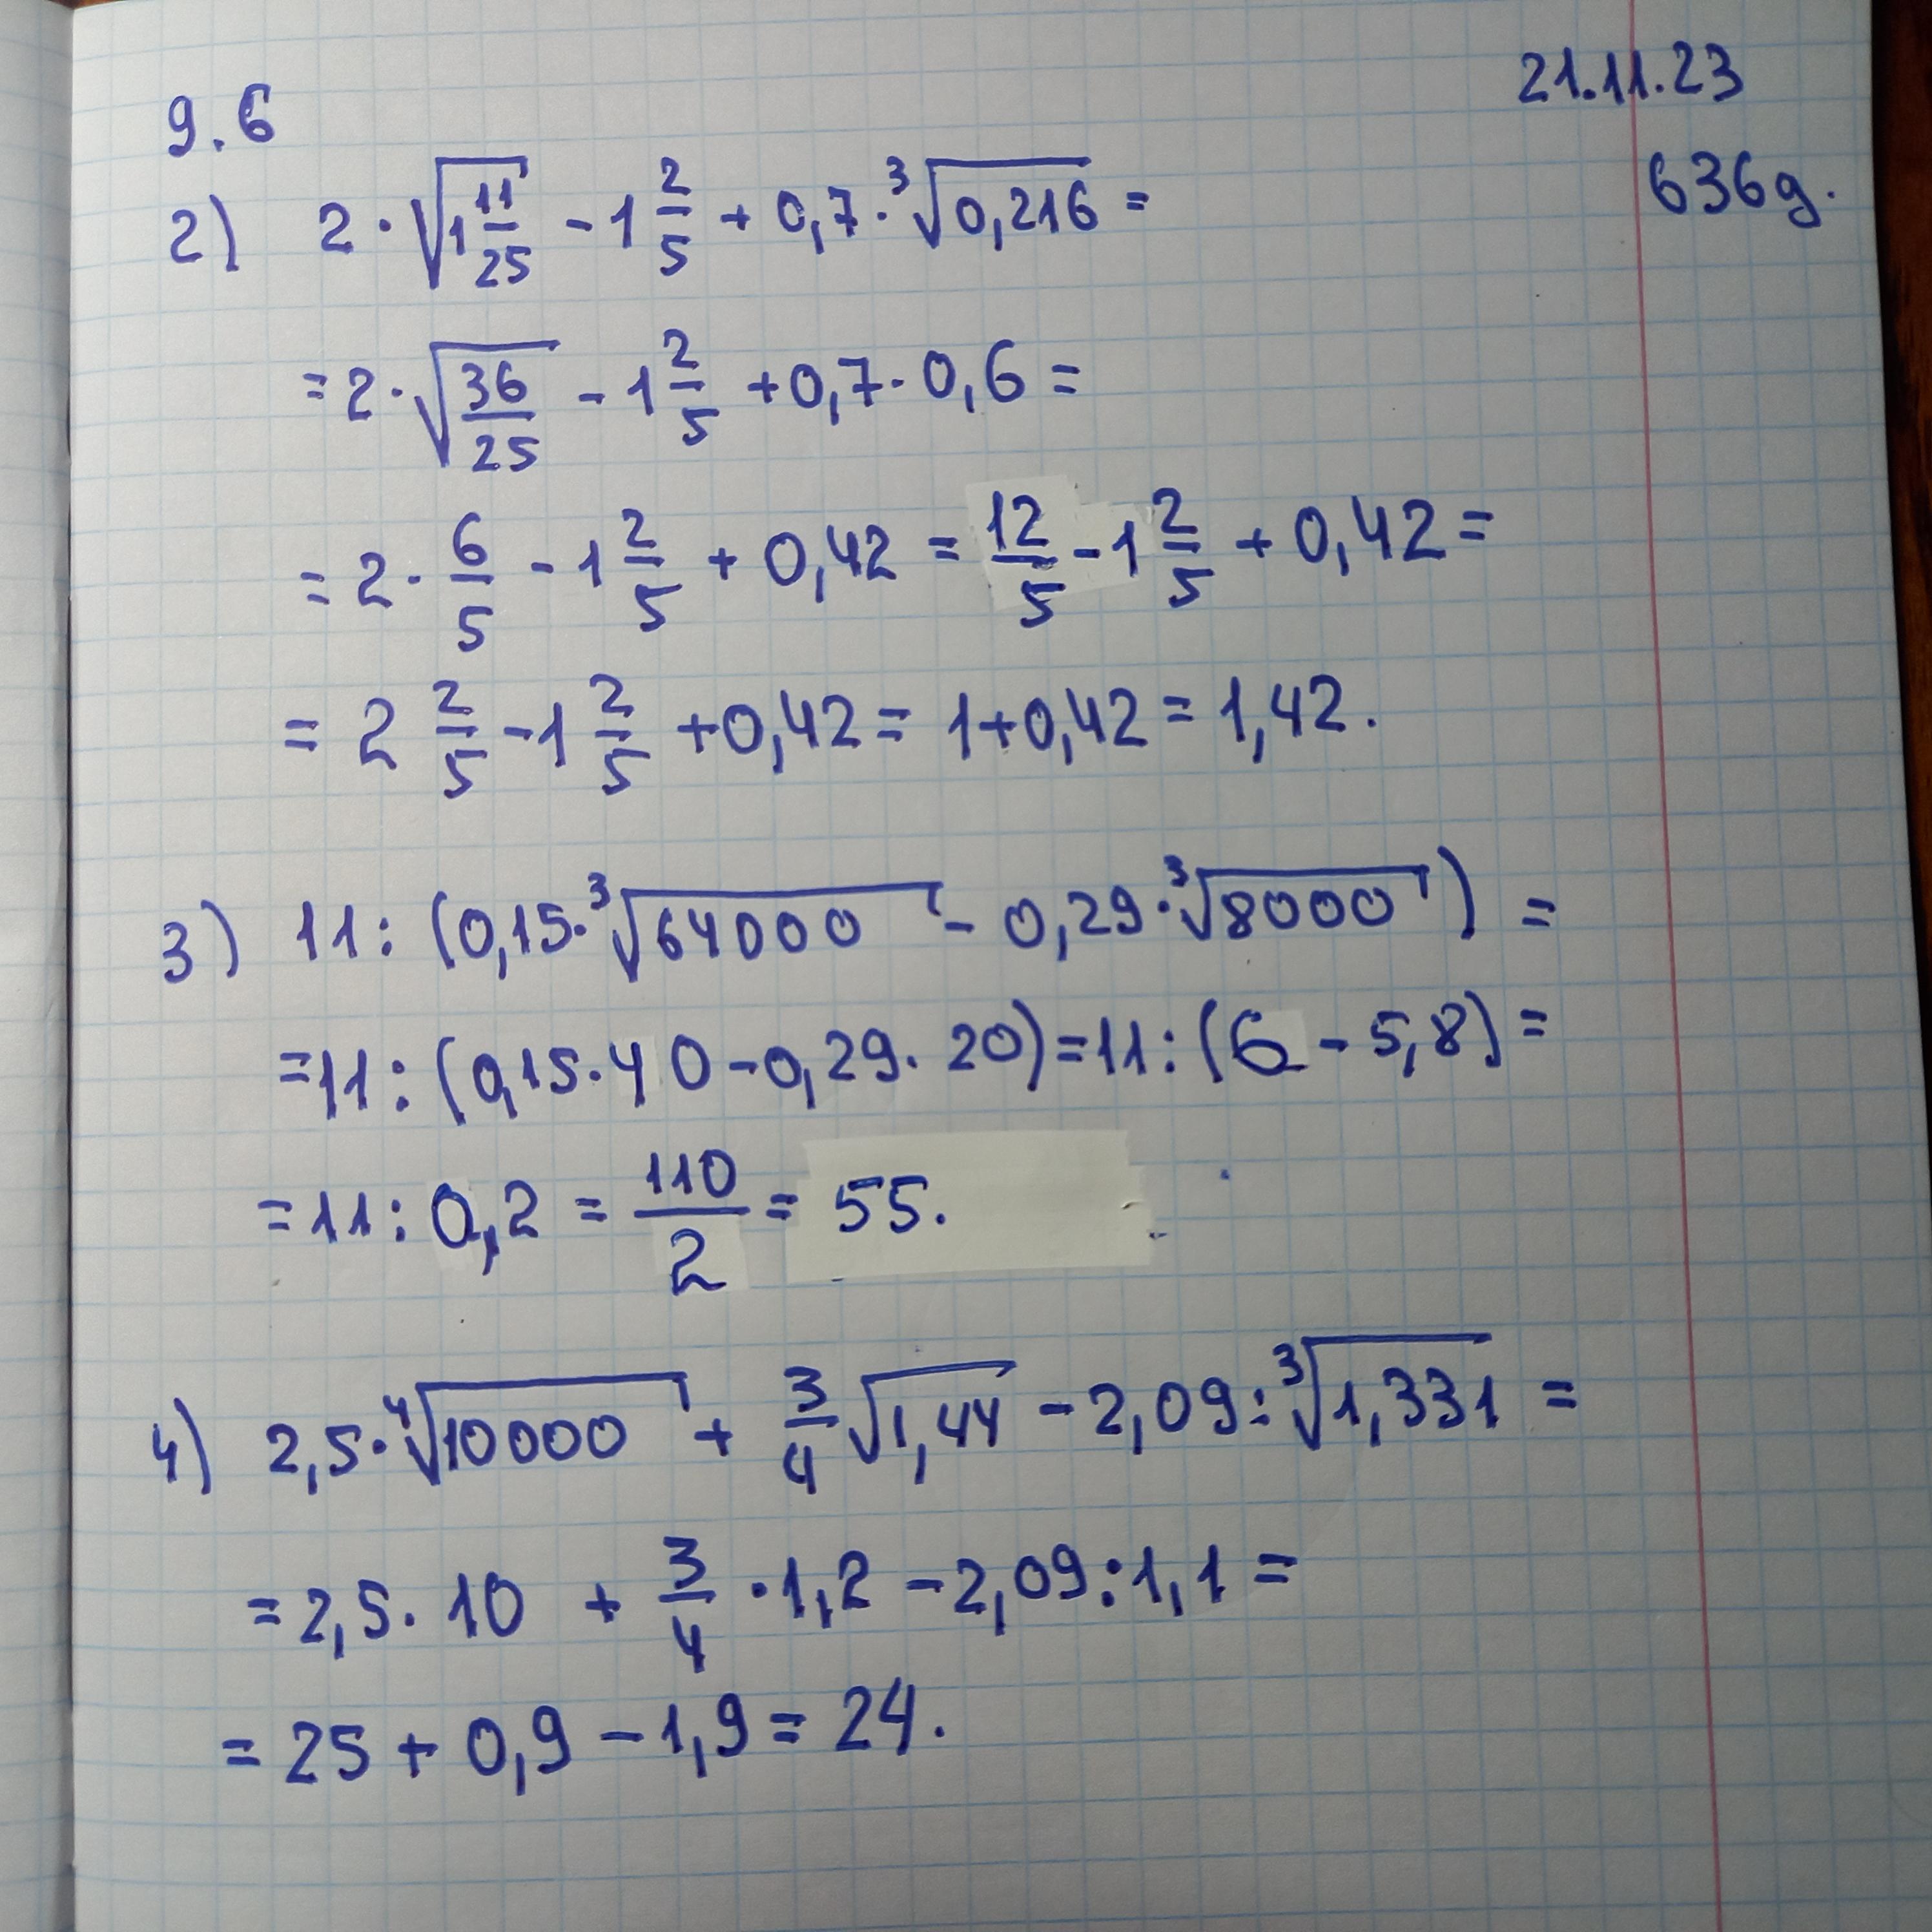 9.6
21.11.23
636д.
2) 2·√(1 11/25) - 1 2/5 + 0,7·³√0,216 =
= 2·√(36/25) - 1 2/5 + 0,7·0,6 =
= 2·6/5 - 1 2/5 + 0,42 = 12/5 - 1 2/5 + 0,42 =
= 2 2/5 - 1 2/5 + 0,42 = 1+0,42 = 1,42.
3) 11:(0,15·³√64000 - 0,29·³√8000) =
=11:(0,15·40-0,29·20)=11:(6-5,8)=
=11:0,2 = 110/2 = 55.
4) 2,5·⁴√10000 + 3/4 √1,44 - 2,09:³√1,331 =
= 2,5·10 + 3/4 ·1,2 - 2,09:1,1 =
= 25 + 0,9 - 1,9 = 24.